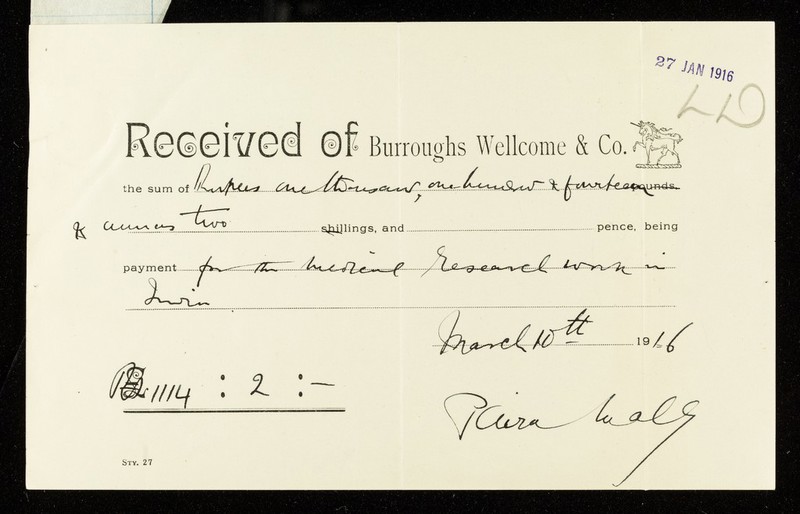 27 JAN 1916
LD
Received of Burroughs Wellcome & Co.
the sum of Rupees one thousand, one hundred & fourteen pounds
& annas two shillings, and pence, being
payment for the medical research work in
India
March 10th 1916
Rs 1114 : 2 : —
Sty. 27